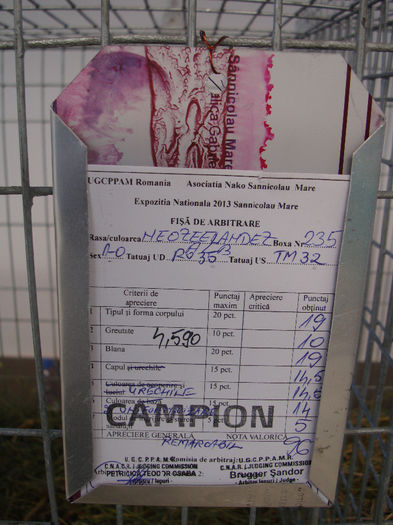 Sannicolau Mare
UGCPPAM Romania Asociatia Nako Sannicolau Mare
Expozitia Nationala 2013 Sannicolau Mare
FIȘĂ DE ARBITRARE
Rasa/culoarea NEOZEELANDEZ Boxa Nr. 235
sex 1-0 Tatuaj UD RO 35 Tatuaj US TM 32
Criterii de apreciere Punctaj maxim Apreciere critică Punctaj obținut
1 Tipul și forma corpului 20 pct. 19
Greutate 4,590 10 pct. 10
Blana 20 pct. 19
Capul și urechile 15 pct. 14,5
Culoarea de acoperire și luciul URECHILE 15 pct. 14,5
Culoarea de bază 15 pct. 14
5 pct. 5
CAMPION
APRECIERE GENERALĂ REMARCABIL NOTA VALORICĂ 96
Comisia de arbitraj:U.G.C.P.P.A.M.R.
U.G.C.P.P.A.M.R.
C.N.A.R. (JUDGING COMMISSION C.N.A.R. (JUDGING COMMISSION
PETRICICA TEODOR CSABA 2: Brugger Sandor
Iepuri - - Arbitru Iepuri / Judge -